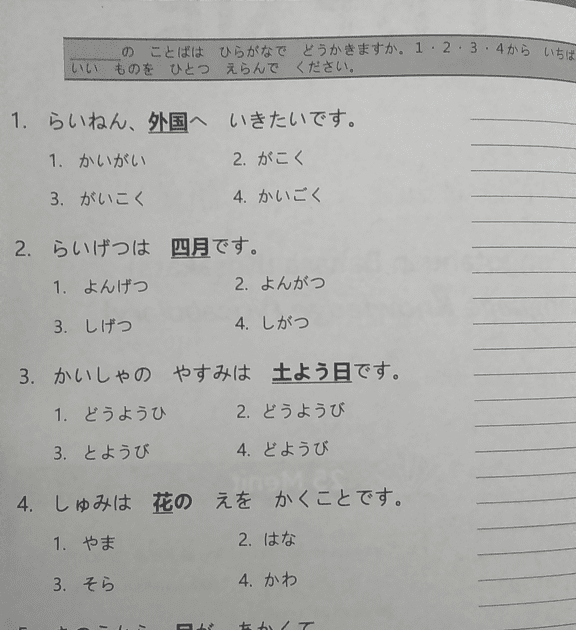 ______の　ことばは　ひらがなで　どうかきますか。1・2・3・4から　いちば
いい　ものを　ひとつ　えらんで　ください。
1.　らいねん、外国へ　いきたいです。
1.　かいがい　2.　がこく
3.　がいこく　4.　かいごく
2.　らいげつは　四月です。
1.　よんげつ　2.　よんがつ
3.　しげつ　4.　しがつ
3.　かいしゃの　やすみは　土よう日です。
1.　どうようひ　2.　どうようび
3.　とようび　4.　どようび
4.　しゅみは　花の　えを　かくことです。
1.　やま　2.　はな
3.　そら　4.　かわ